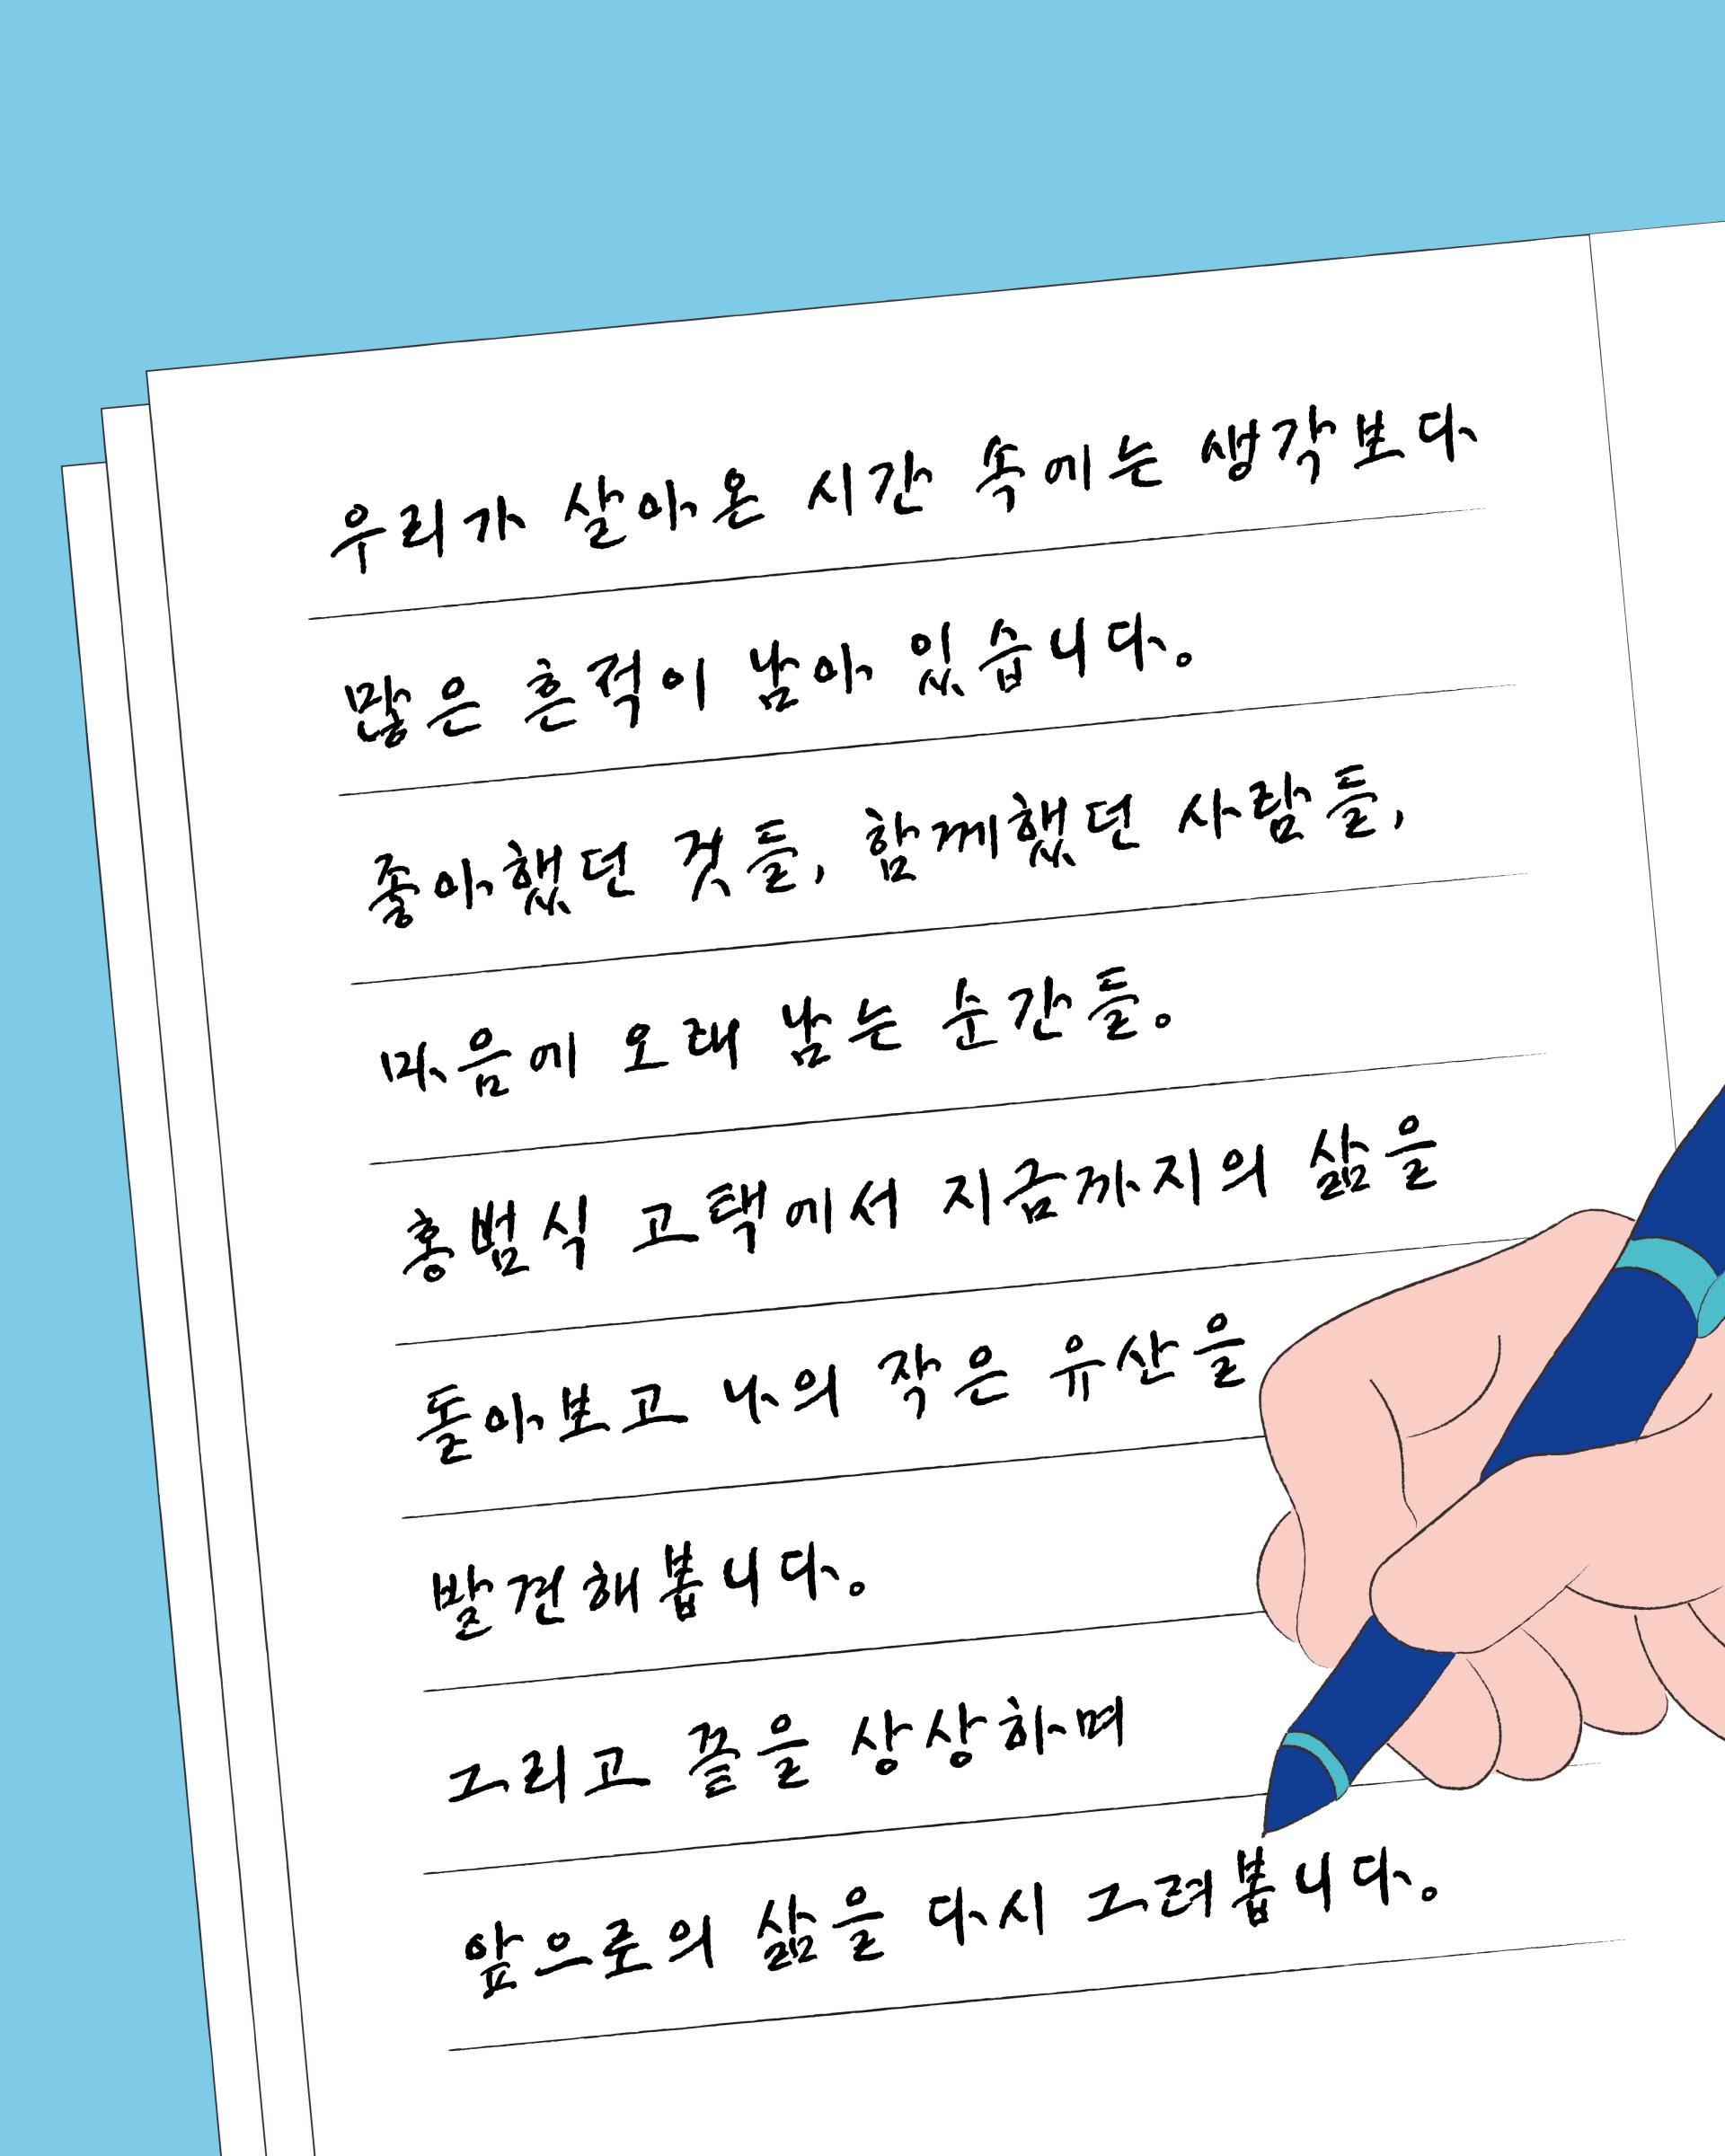 우리가 살아온 시간 속에는 생각보다
많은 흔적이 남아 있습니다.
좋아했던 것들, 함께했던 사람들,
마음에 오래 남는 순간들.
홍범식 고택에서 지금까지의 삶을
돌아보고 나의 작은 유산을
발견해봅니다.
그리고 끝을 상상하며
앞으로의 삶을 다시 그려봅니다.